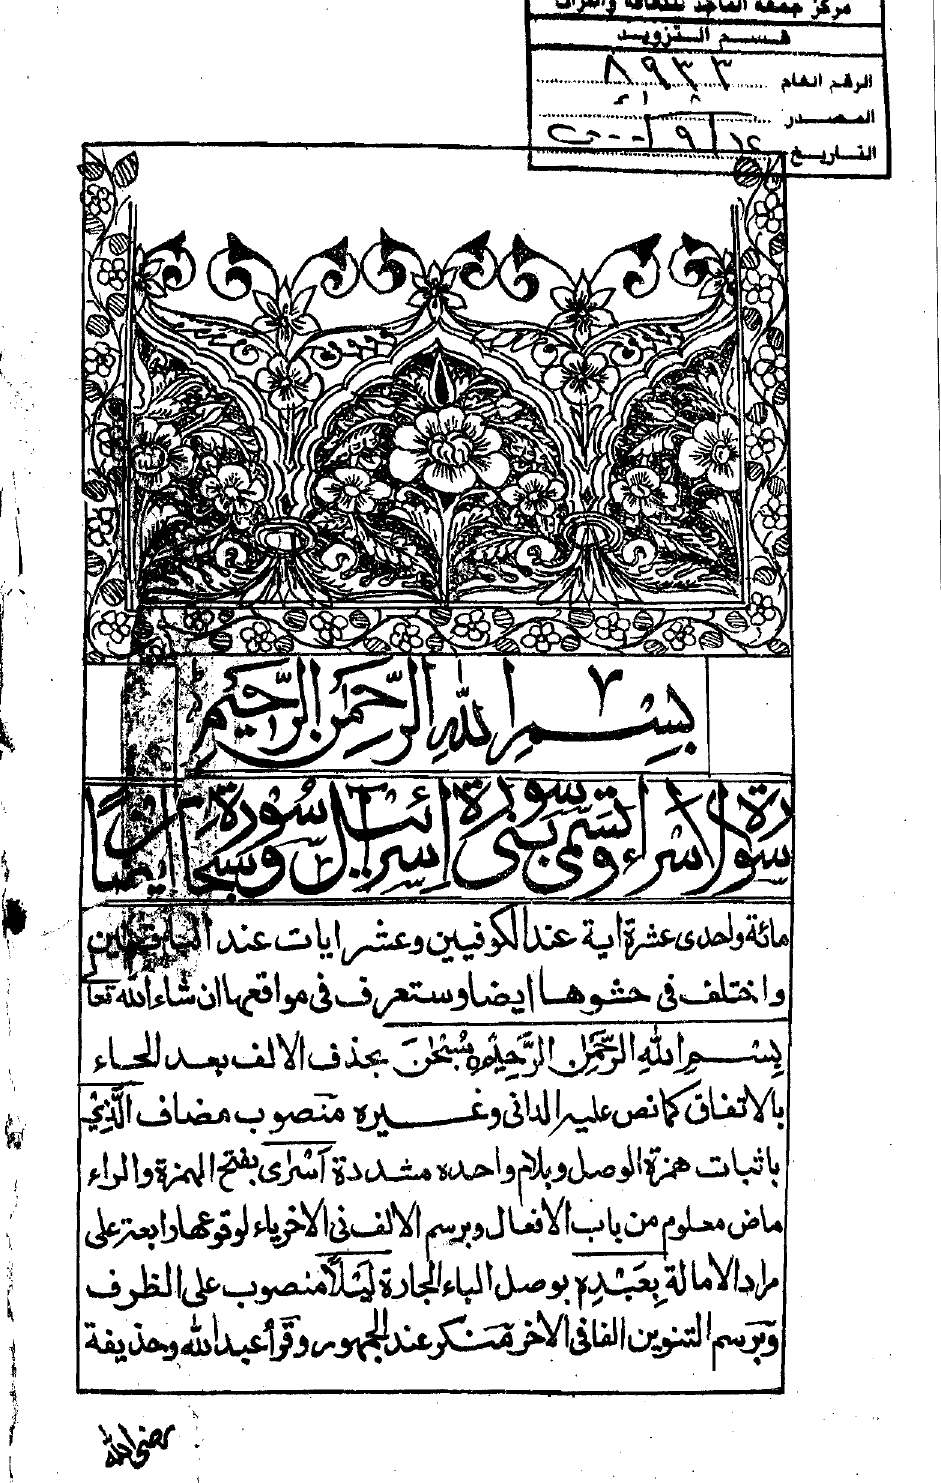 مركز جمعة الماجد للثقافة والتراث
قسم التزويد
الرقم العام ٨٩٣٣
المصدر
التاريخ
بِسْمِ اللهِ الرَّحْمٰنِ الرَّحِيْمِ
سورة الاسراء وتسمى سورة بنى اسرائيل وسورة سبحان ايضا
مائة واحدى عشرة اية عند الكوفيين وعشر ايات عند الباقين
واختلف فى حشوها ايضا وستعرف فى مواقعها ان شاء الله تعا
بِسْمِ اللهِ الرَّحْمٰنِ الرَّحِيْمِ سُبْحٰنَ بحذف الالف بعد الحاء
بالاتفاق كما نص عليه الدانى وغيره منصوب مضاف الَّذِيْ
باثبات همزة الوصل وبلام واحده مشددة اَسْرٰى بفتح الهمزة والراء
ماض معلوم من باب الافعال وبرسم الالف فى الاخر ياء لوقوعها رابعة على
مراد الامالة بِعَبْدِهٖ بوصل الباء الجارة لَيْلًا منصوب على الظرف
وبرسم التنوين الفا فى الاخر منكر عند الجمهور وقرأ عبد الله وحذيفة
رضى الله